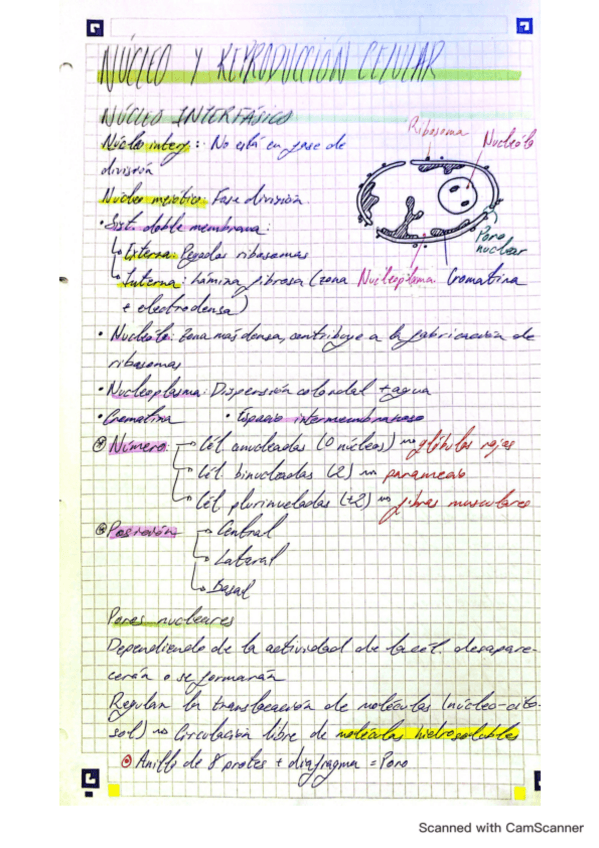 NÚCLEO Y REPRODUCCIÓN CELULAR
NÚCLEO INTERFÁSICO
Núcleo interf.: No está en fase de
división
Núcleo meiótico: Fase división.
Ribosoma
Nucleólo
Poro
nuclear
Nucleoplasma
Cromatina
• Sist. doble membrana:
Externa: Pegados ribosomas
Interna: Lámina fibrosa (zona
+ electrodensa)
• Nucleólo: Zona más densa, contribuye a la fabricación de
ribosomas
• Nucleoplasma: Dispersión coloidal + agua
• Cromatina • Espacio intermembranoso
Número: Cél anucleadas (0 núcleos) glóbulos rojos
Cél. binucleadas (2) paramecio
Cél plurinucleadas (+2) fibras musculares
Posición Central
Lateral
Basal
Poros nucleares
Dependiendo de la actividad de la cél. desapare-
cerán o se formarán
Regulan la translocación de moléculas (núcleo-cito-
sol) Circulación libre de moléculas hidrosolubles
Anillo de 8 protes + diafragma = Poro
Scanned with CamScanner